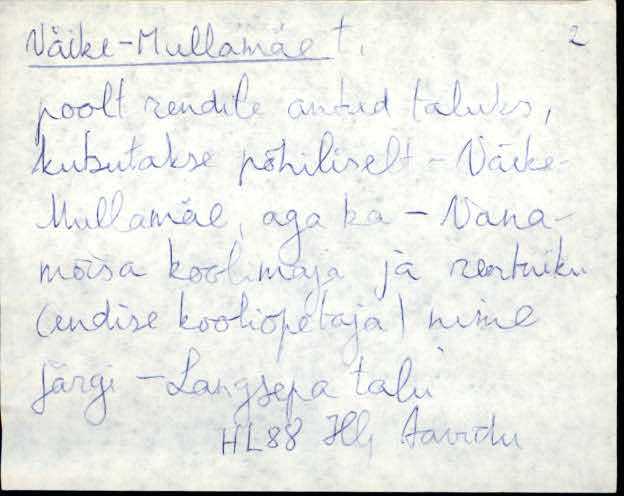 Väike-Mullamäe t. 2
poolt rendile antud taluks,
kutsutakse põhiliselt - Väike-
Mullamäe, aga ka - Vana-
mõisa koolimaja ja rentniku
(endise kooliõpetaja) nime
järgi - Langsepa talu
HL88 Hlj Aavidu